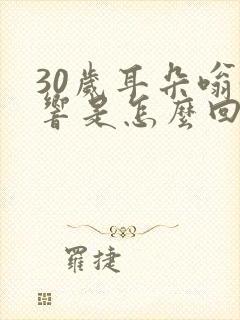 30歲耳朵嗡
響是怎麼回
羅捷